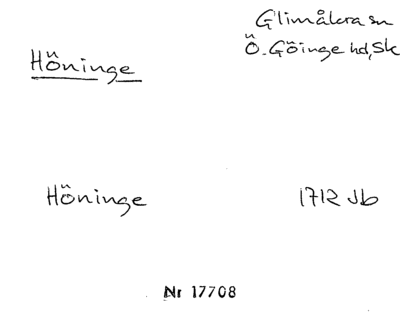 Glimåkra sn
Höninge
Ö. Göinge hd, Sk
Höninge
1712 Jb
Nr 17708